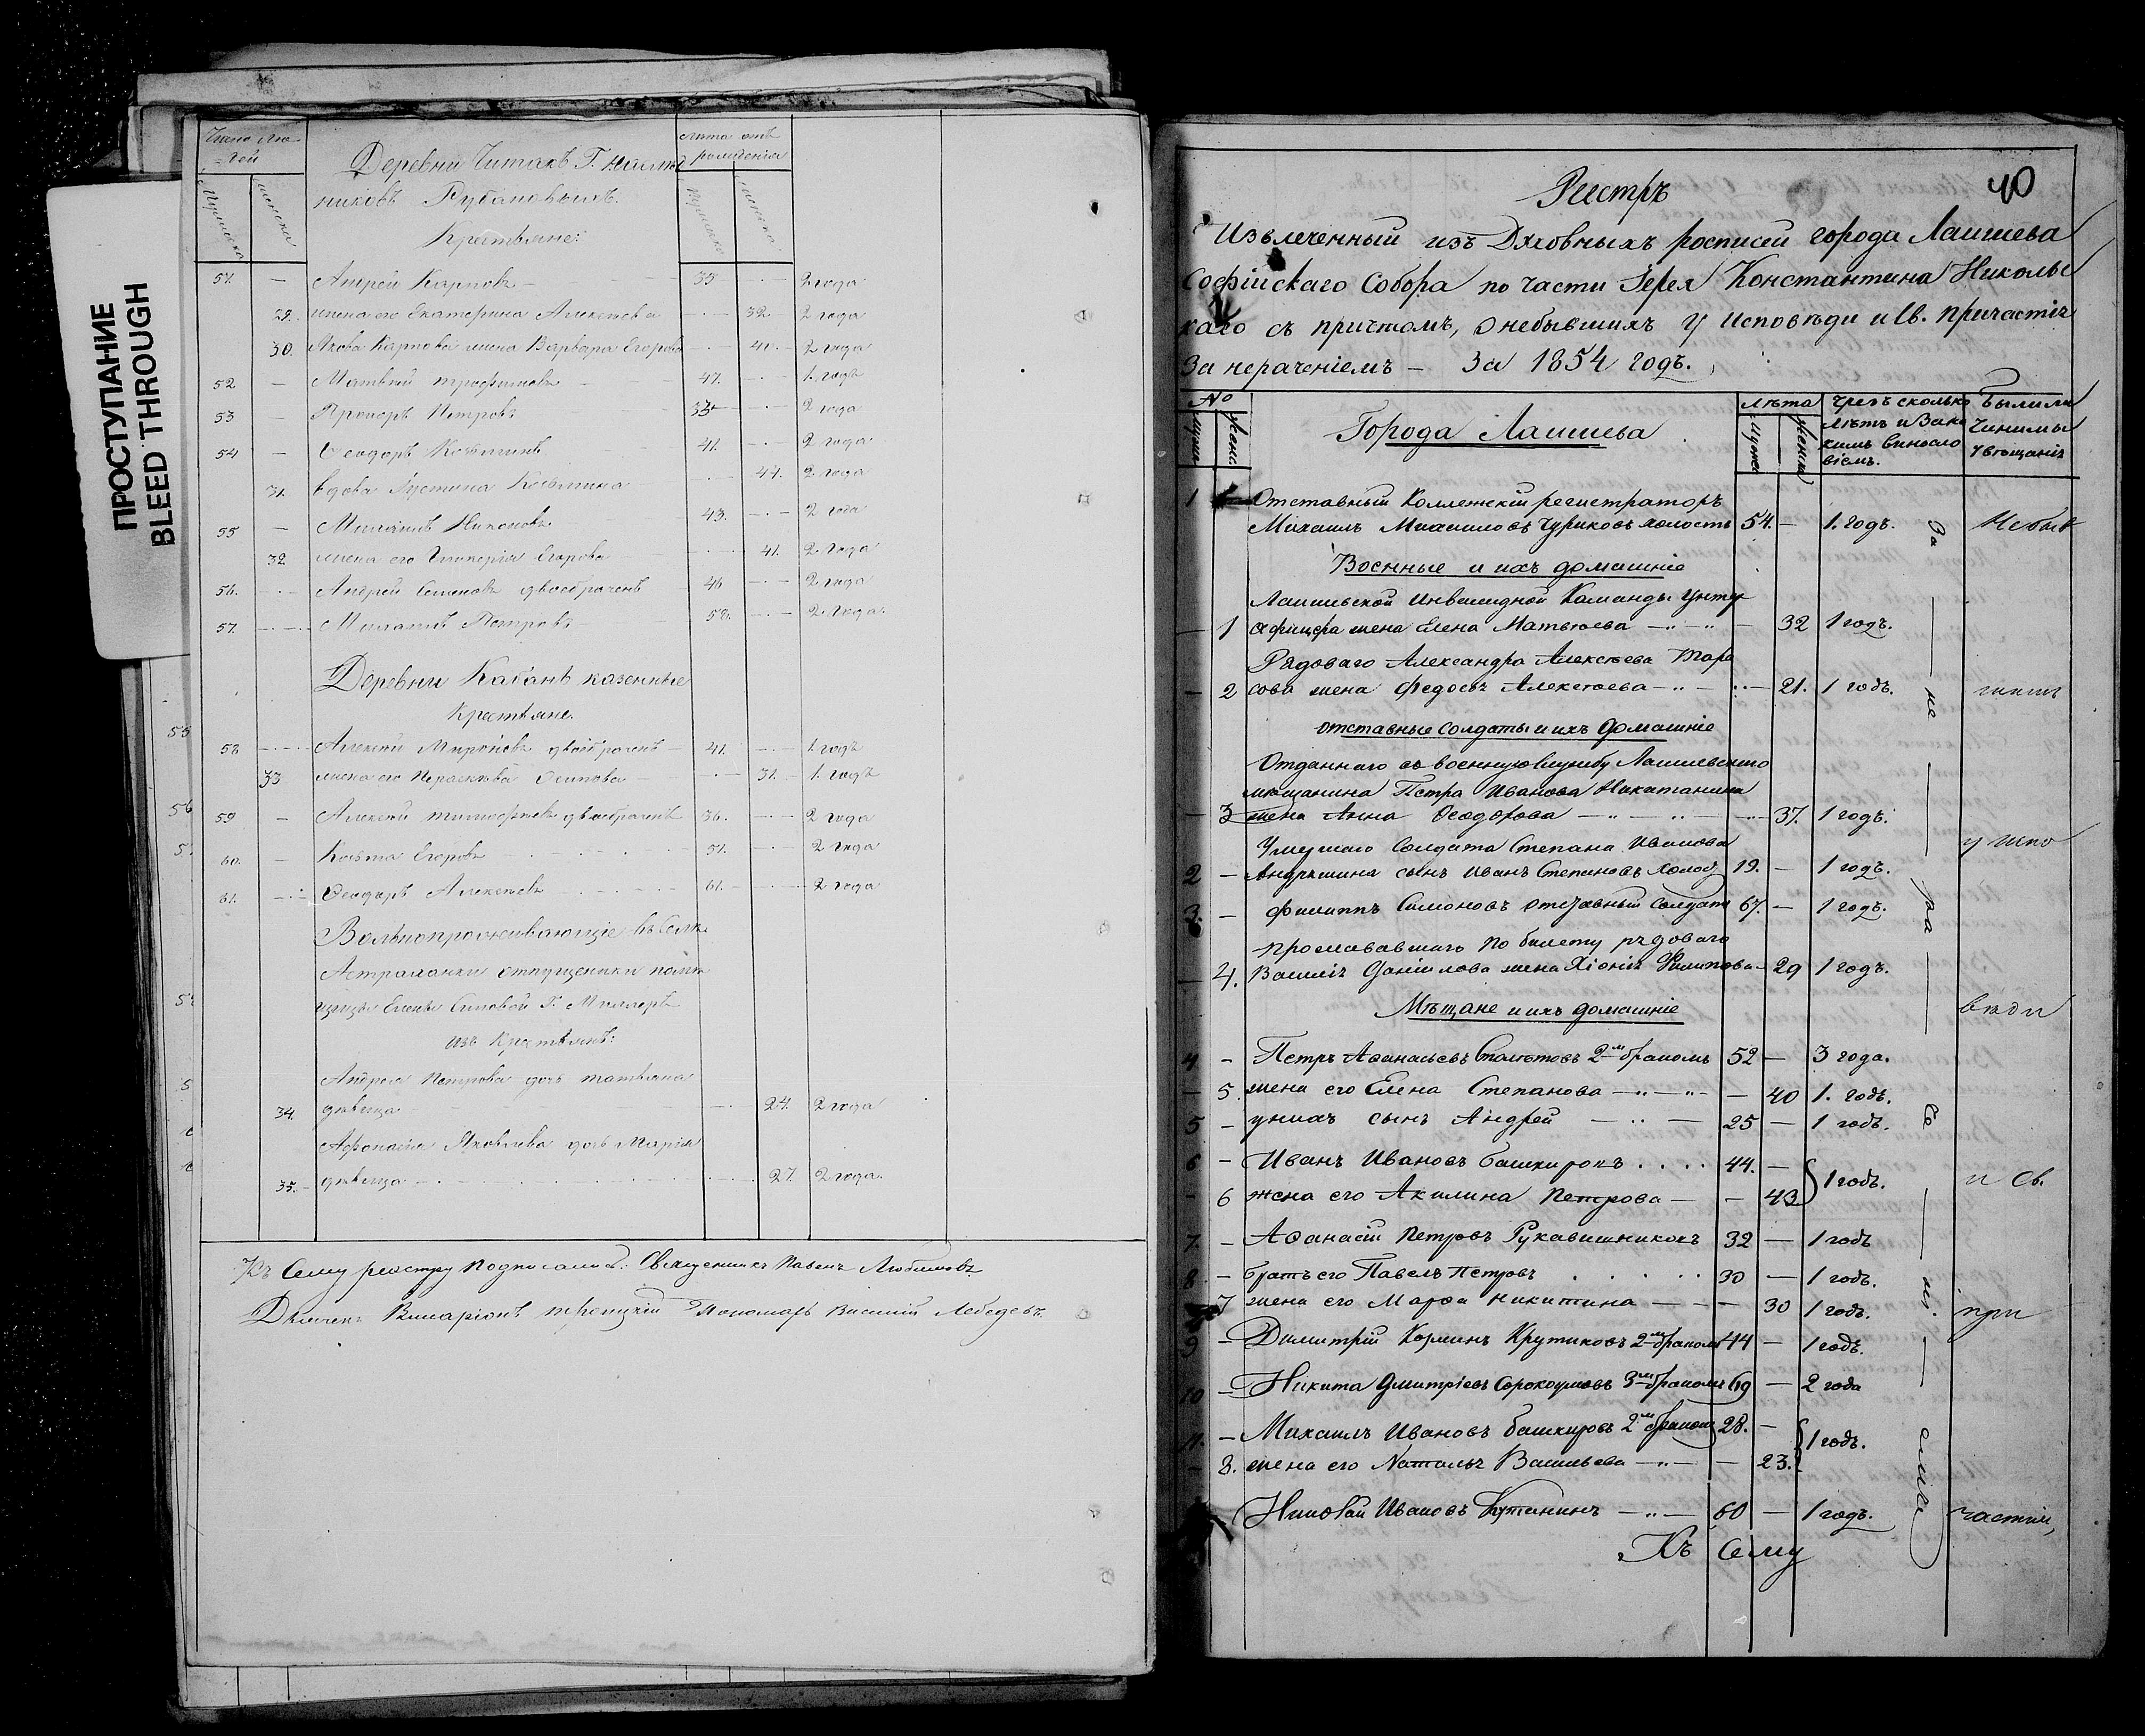 ПРОСТУПАНИЕ
BLEED THROUGH
Число лю-
дей
Мужеска
женска
Деревни Читакъ Г.
никовъ
Крестьяне:
лѣта отъ
рожденія
Мужеска
женска
51. — Андрей Карповъ — 35 — 2 года
29. жена его Екатерина Алексѣева — 32. 2 года
30. Якова Карпова жена Варвара Егорова — 41. 2 года
52 — Матвей Трофимовъ — 47. — 1. годъ
53 — Прохоръ Петровъ — 2 года
54 — Ѳеодоръ Козьминъ 41. — 2 года
31. вдова Устинья Козьмина 2 года
55 — Никоновъ 43. — 2 года
32 жена его Гликерія Егорова — 41. 2 года
56. — Андрей Семеновъ двоебраченъ 46 — 2 года
57. — Петровъ 58. — 2 года.
Деревни Кабанъ казенные
Крестьяне.
58 — Алексѣй Мироновъ двоебраченъ — 41. — 1. годъ
33 жена его Параскева Осипова — 31. 1. годъ
59 — Алексѣй Тимофѣевъ двоебраченъ 36. — 2 года
60. — Козьма Егоровъ 51. — 2 года
61. — Ѳеодоръ Алексѣевъ 61. — 2 года
Вольнопроживающіе въ Селѣ
Астраханки отпущеники помѣ
щицы Елены Г.
изъ Крестьянъ:
Андрея Петрова дочь Татьяна
34. дѣвица — 24. 2 года
Афонасія Яковлева дочь Марія
35. — дѣвица — 27. 2 года.
Къ Сему реэстру подписались: Священникъ Павелъ Любимовъ
Дьяконъ Троицкій Пономарь Василій Лебедевъ.
40
Реестръ
Извлеченный изъ Духовныхъ росписей города Лаишева
Софійскаго Собора по части Іерея Константина Николь
каго съ причтомъ, о небывшихъ у Исповѣди и Св. Причастія
За нераченіемъ — За 1854 годъ.
№
Мужес
Женс.
Города Лаишева
лѣта
Мужес
Женска
Чрезъ сколько
лѣтъ и за ка
кимъ винсло
віемъ.
Были ли
Чинимы
увѣщанія
1 — Отставный Коллежскій регистраторъ
Михаилъ Михаиловъ Чуриковъ холостъ 54. — 1. годъ.
Военные и ихъ домашніе
Лаишевской Инвалидной Команды Унтеръ
— 1 Офицера жена Елена Матвѣева — 32 1 годъ.
Рядоваго Александра Алексѣева Тара
— 2 сова жена Федосья Алексѣева — 21. 1 годъ.
отставные солдаты и ихъ домашніе
Отданнаго въ военную службу Лаишевскаго
мѣщанина Петра Иванова Никитанина
— 3 жена Анна Ѳеодорова — 37. 1 годъ.
Умершаго Солдата Степана Иванова
2 — Андрѣшина сынъ Иванъ Степановъ холос 19. — 1 годъ.
3. — Филиппъ Симоновъ отставный солдатъ 67. — 1 годъ.
проживавшаго по билету рядоваго
— 4. Василія Данилова жена Хіонія Филипова — 29 1 годъ.
Мѣщане и ихъ домашніе
4 — Петръ Аѳанасьевъ 2мъ бракомъ 52 — 3 года.
— 5. жена его Елена Степанова — 40 1. годъ.
5 — у нихъ сынъ Андрей — 25 — 1 годъ.
6 — Иванъ Ивановъ Башкировъ 44. —
— 6 жена его Акилина Петрова — 43 1 годъ.
7. — Аѳанасій Петровъ Рукавишниковъ 32 — 1 годъ
8 — братъ его Павелъ Петровъ 30 — 1 годъ.
7 жена его Марѳа Никитина — 30 1 годъ.
9 — Димитрій Крутиковъ 2мъ бракомъ 44 — 1 годъ.
10 — Никита Дмитріевъ Сорокоумовъ 3мъ бракомъ 69 — 2 года
11. — Михаилъ Ивановъ Башкировъ 2мъ бракомъ 28. —
— 8. жена его Наталья Васильева — 23. 1 годъ.
Николай Ивановъ — 60 — 1 годъ.
Къ Сему
За — не — ра — че — ні — емъ
Небыв
шимъ
у испо
вѣди
и Св.
при
частія,